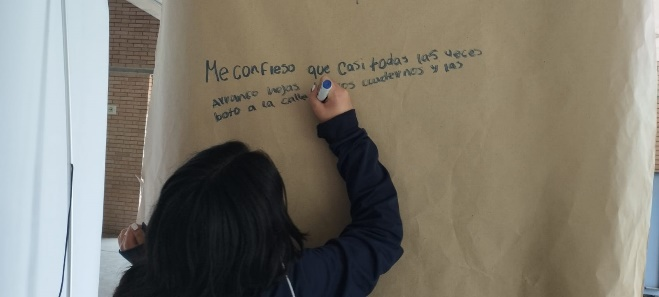 Me confieso que casi todas las veces
Arranco hojas os cuadernos y las
boto a la calle